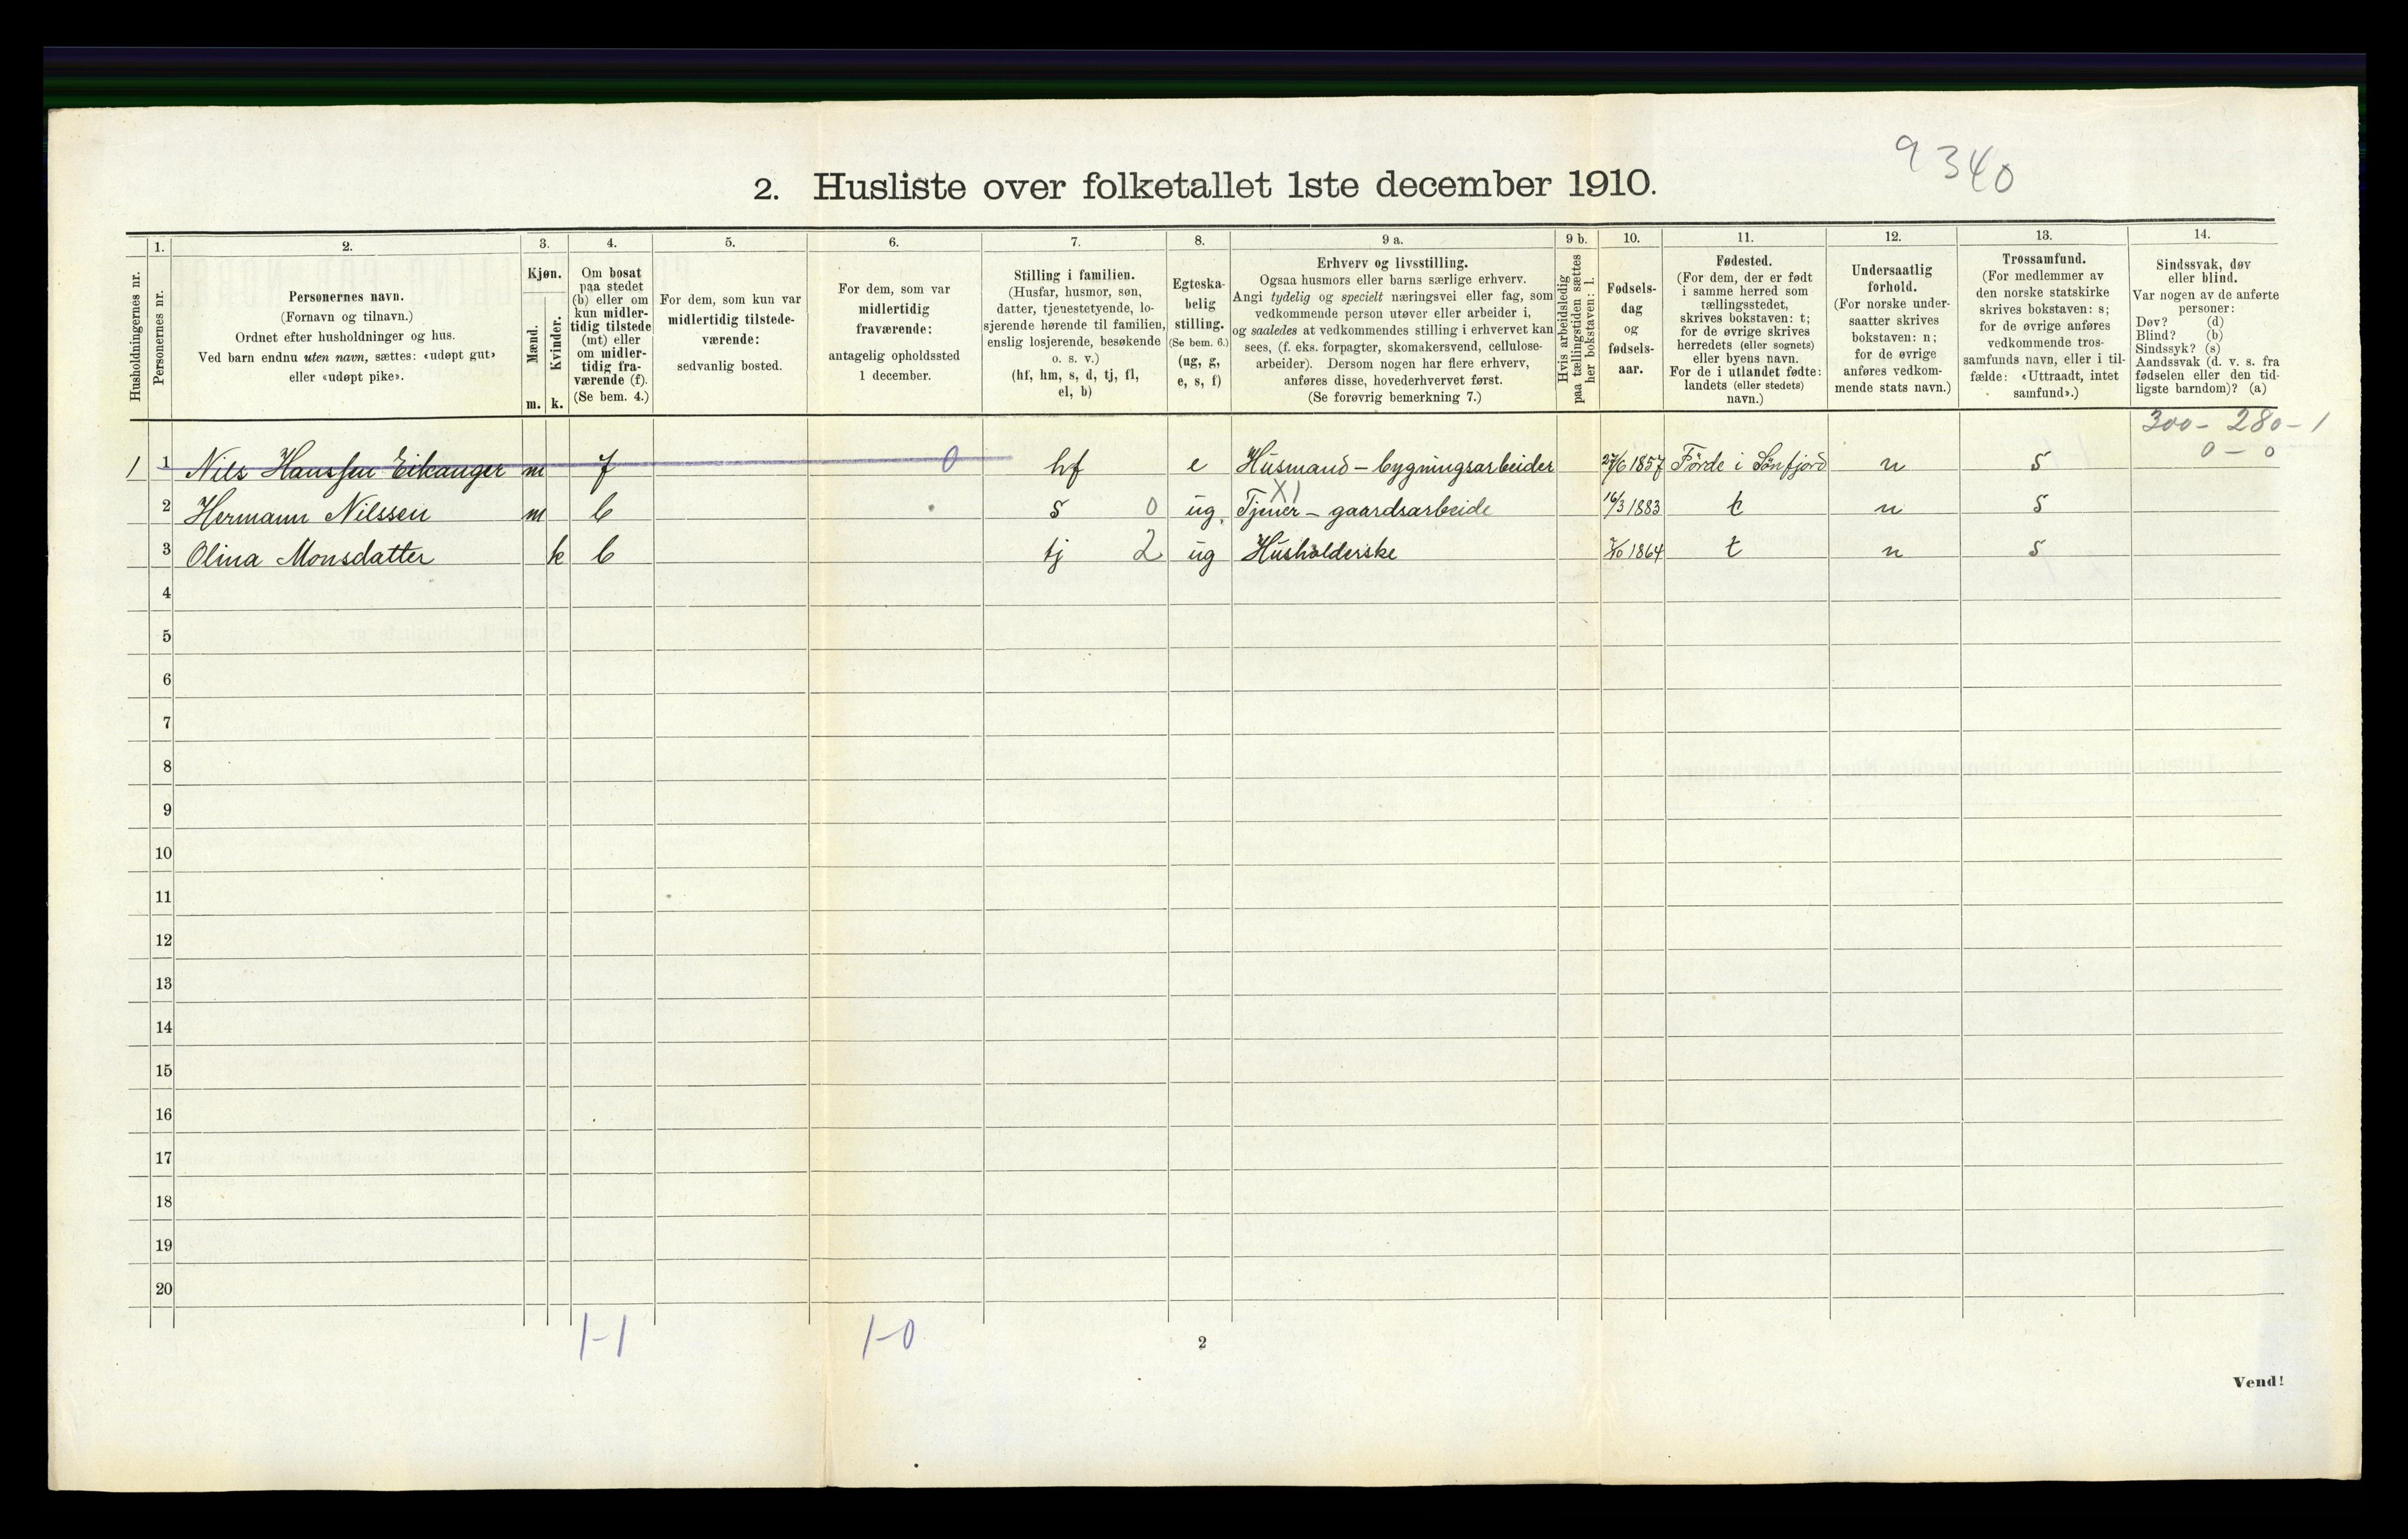 9340
2. Husliste over folketallet 1ste december 1910.
Husholdningernes nr.
1.
Personernes nr.
2.
Personernes navn.
(Fornavn og tilnavn.)
Ordnet efter husholdninger og hus.
Ved barn endnu uten navn, sættes: «udøpt gut»
eller «udøpt pike».
3.
Kjøn.
Mænd.
Kvinder.
m. k.
4.
Om bosat
paa stedet
(b) eller om
kun midler-
tidig tilstede
(mt) eller
om midler-
tidig fra-
værende (f).
(Se bem. 4.)
5.
For dem, som kun var
midlertidig tilstede-
værende:
sedvanlig bosted.
6.
For dem, som var
midlertidig
fraværende:
antagelig opholdssted
1 december.
7.
Stilling i familien.
(Husfar, husmor, søn,
datter, tjenestetyende, lo-
sjerende hørende til familien,
enslig losjerende, besøkende
o. s. v.)
(hf, hm, s, d, tj, fl,
el, b)
8.
Egteska-
belig
stilling.
(Se bem. 6.)
(ug, g,
e, s, f)
9 a.
Erhverv og livsstilling.
Ogsaa husmors eller barns særlige erhverv.
Angi tydelig og specielt næringsvei eller fag, som
vedkommende person utøver eller arbeider i,
og saaledes at vedkommendes stilling i erhvervet kan
sees, (f. eks. forpagter, skomakersvend, cellulose-
arbeider). Dersom nogen har flere erhverv,
anføres disse, hovederhvervet først.
(Se forøvrig bemerkning 7.)
9 b.
Hvis arbeidsledig
paa tællingstiden sættes
her bokstaven: l.
10.
Fødsels-
dag
og
fødsels-
aar.
11.
Fødested.
(For dem, der er født
i samme herred som
tællingsstedet,
skrives bokstaven: t;
for de øvrige skrives
herredets (eller sognets)
eller byens navn.
For de i utlandet fødte:
landets (eller stedets)
navn.)
12.
Undersaatlig
forhold.
(For norske under-
saatter skrives
bokstaven: n;
for de øvrige
anføres vedkom-
mende stats navn.)
13.
Trossamfund.
(For medlemmer av
den norske statskirke
skrives bokstaven: s;
for de øvrige anføres
vedkommende tros-
samfunds navn, eller i til-
fælde: «Uttraadt, intet
samfund».)
14.
Sindssvak, døv
eller blind.
Var nogen av de anførte
personer:
Døv? (d)
Blind? (b)
Sindssyk? (s)
Aandssvak (d. v. s. fra
fødselen eller den tid-
ligste barndom)? (a)
300 - 280 - 1
0 - 0
1 1 Nils Hanssen Eikanger m f 0 hf e Husmand - bygningsarbeider 27/6 1857 Førde i Sønfjord n s
X1
2 Hermann Nilssen m b s 0 ug. Tjener - gaardsarbeide 16/3 1883 t n s
3 Olina Monsdatter k b tj 2 ug Husholderske 1864 t n s
4
5
6
7
8
9
10
11
12
13
14
15
16
17
18
19
20
1-1 1-0
2
Vend!